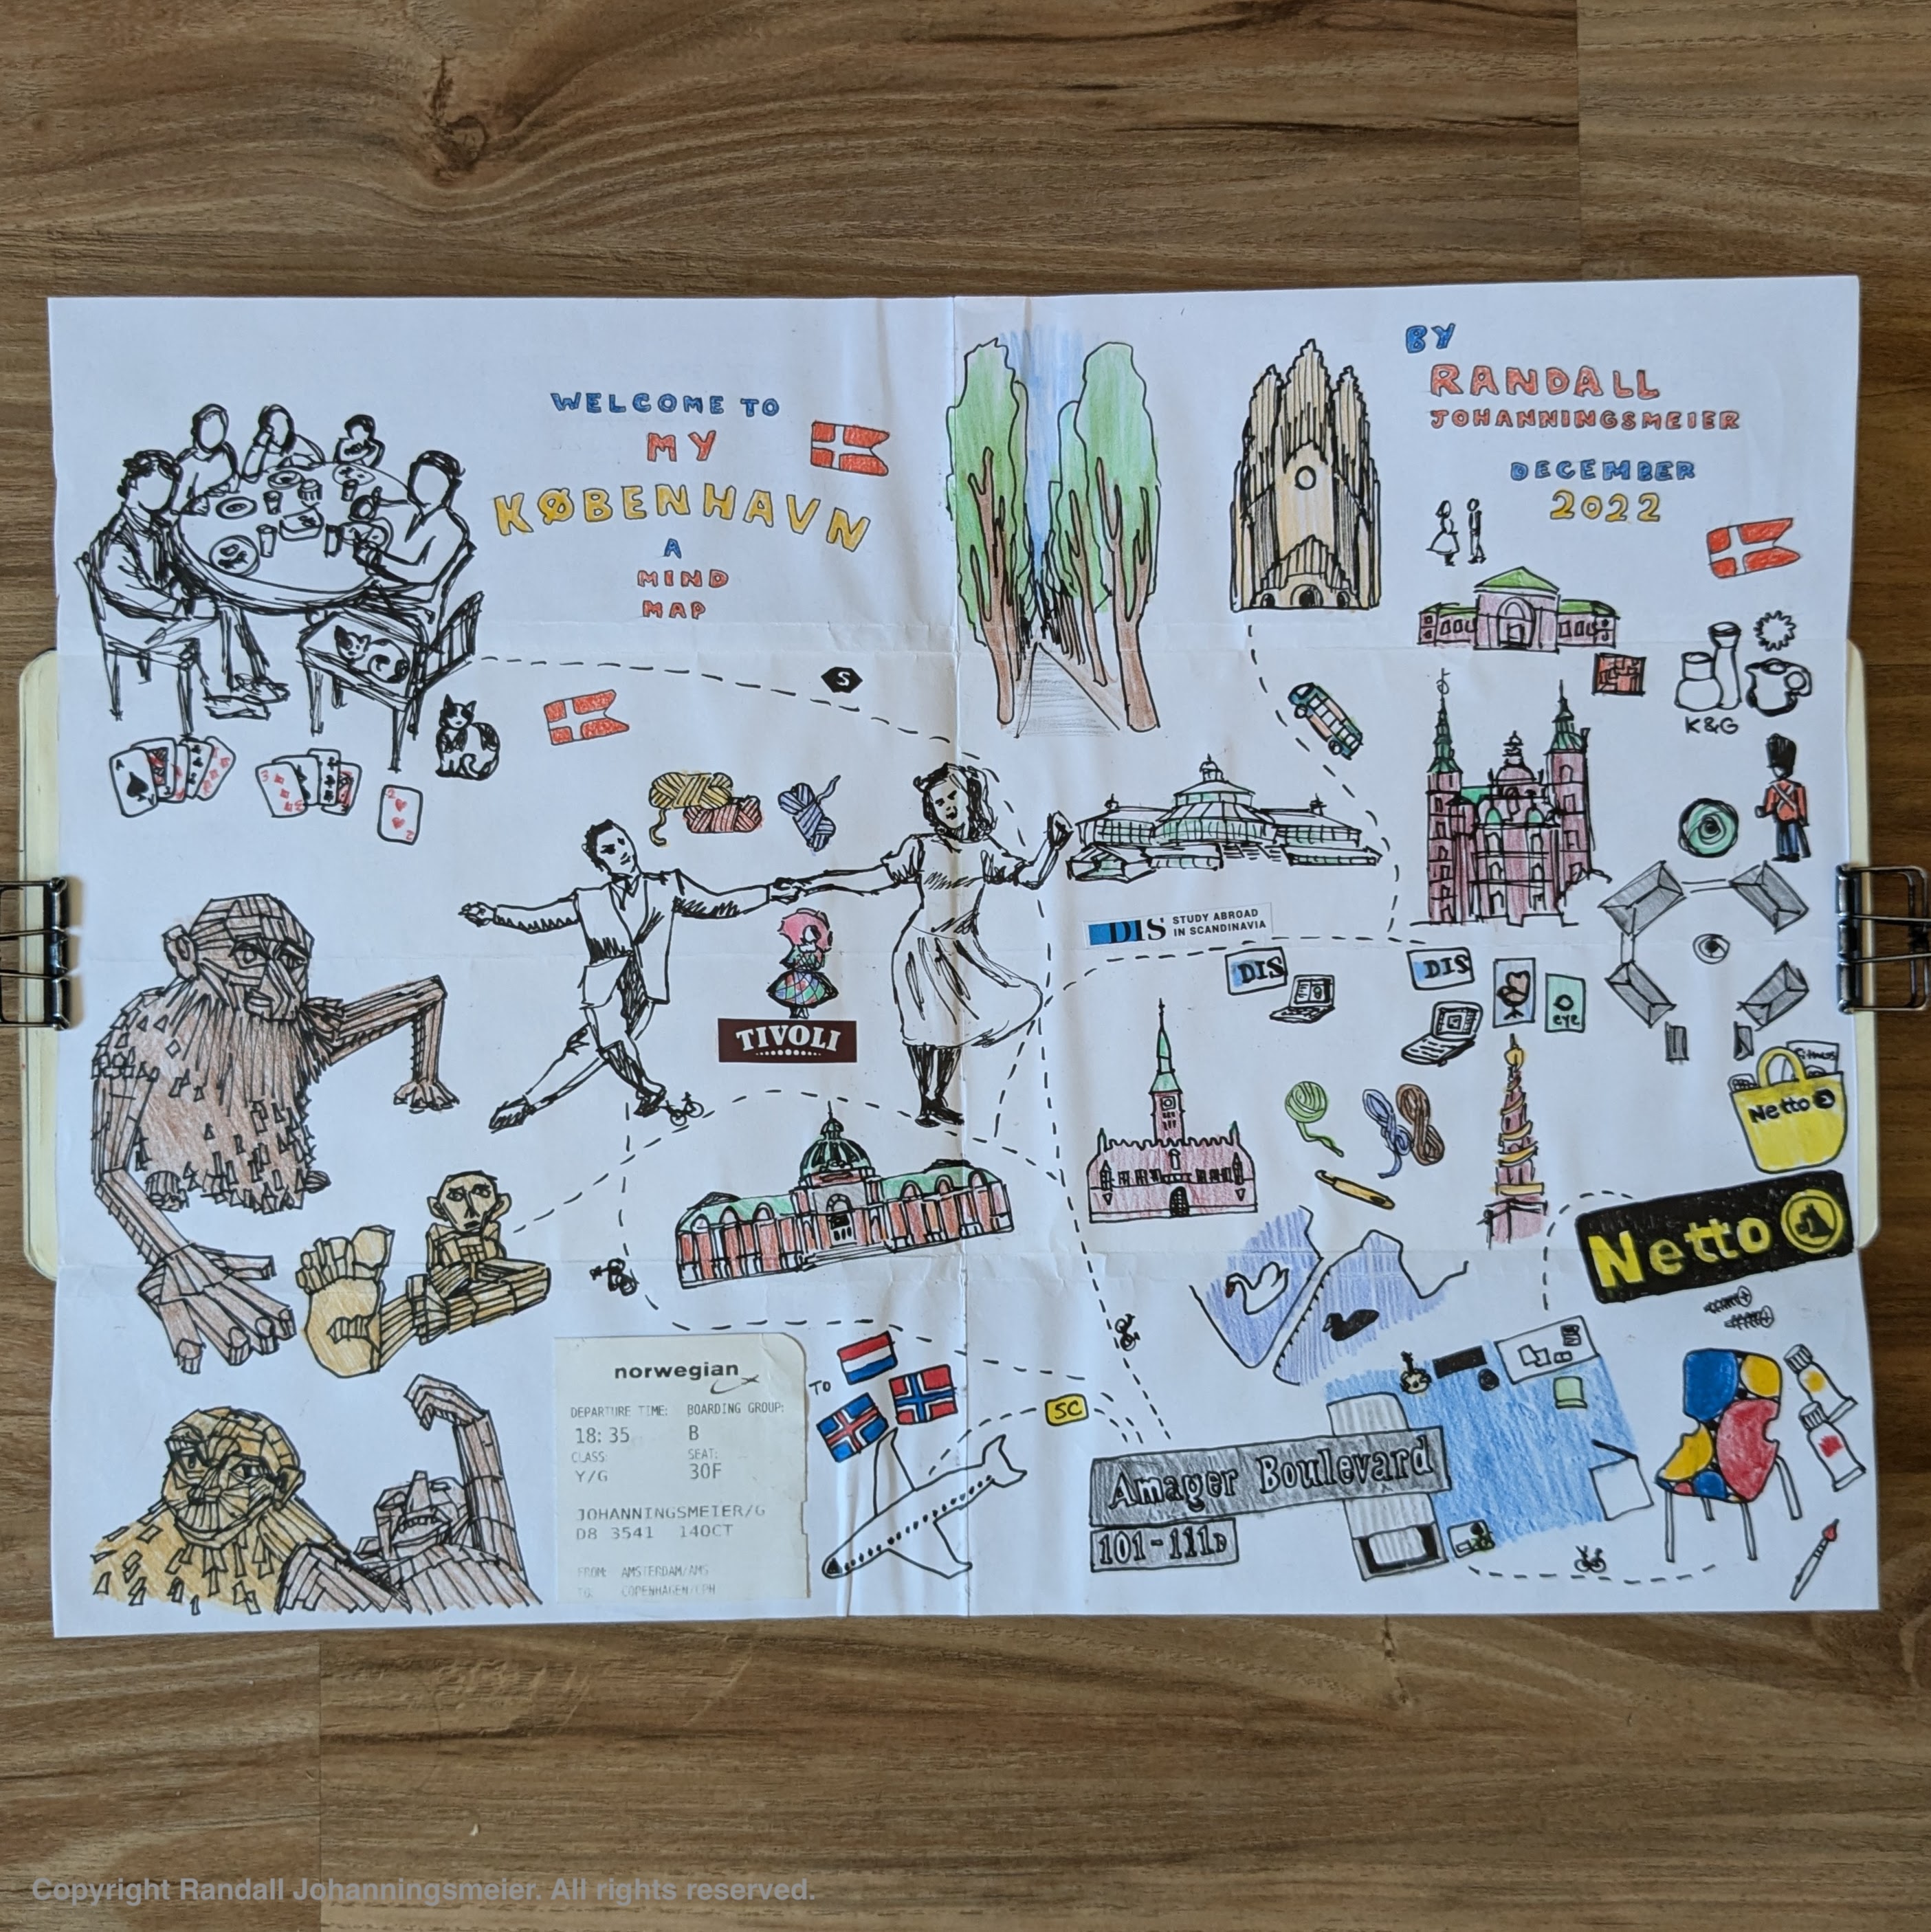 WELCOME TO
MY
KØBENHAVN
A
MIND
MAP
BY
RANDALL
JOHANNINGSMEIER
DECEMBER
2022
S
K&G
A
3
2
2
TIVOLI
DIS STUDY ABROAD
IN SCANDINAVIA
DIS
DIS
eye
Netto
Netto
norwegian
DEPARTURE TIME: BOARDING GROUP:
18:35 B
CLASS: SEAT:
Y/G 30F
JOHANNINGSMEIER/G
D8 3541 14OCT
FROM: AMSTERDAM/AMS
TO: COPENHAGEN/CPH
TO
5C
Amager Boulevard
101-111B
Copyright Randall Johanningsmeier. All rights reserved.